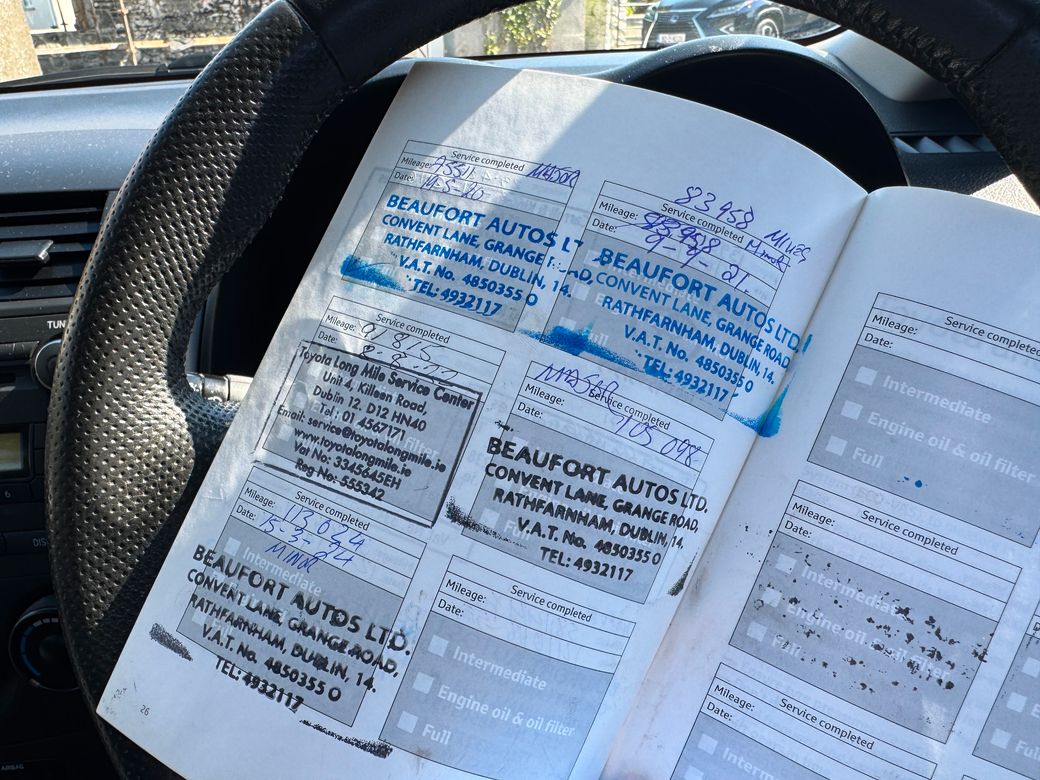 Service completed
Mileage: MAJOR
Date: 11-5-20
BEAUFORT AUTOS LT
CONVENT LANE, GRANGE
RATHFARNHAM, DUBLIN, 14.
V.A.T. No. 4850355 O
TEL: 4932117
83958 MILES
Service completed
Mileage: 83958 Minor
Date: 9-9-21.
BEAUFORT AUTOS LTD.
CONVENT LANE, GRANGE ROAD,
RATHFARNHAM, DUBLIN, 14.
V.A.T. No. 4850355 O
TEL: 4932117
Service completed
Mileage:
Date: 2-8-22
Toyota Long Mile Service Center
Unit 4, Killeen Road,
Dublin 12. D12 HN40
Tel: 01 4567171
Email: service@toyotalongmile.ie
www.toyotalongmile.ie
Vat No: 3345645EH
Reg No: 555342
MAJOR
Service completed
105 098
Date:
BEAUFORT AUTOS LTD.
CONVENT LANE, GRANGE ROAD,
RATHFARNHAM, DUBLIN, 14.
V.A.T. No. 4850355 O
TEL: 4932117
Service completed
Mileage: 113 624
Date: 15-3-24
MINOR
Intermediate
BEAUFORT AUTOS LTD.
CONVENT LANE, GRANGE ROAD,
RATHFARNHAM, DUBLIN, 14.
V.A.T. No. 4850355 O
TEL: 4932117
26
Service completed
Mileage:
Date:
Intermediate
Engine oil & oil filter
Full
Service completed
Mileage:
Date:
Intermediate
Engine oil & oil filter
Full
Service completed
Mileage:
Date:
Intermediate
Engine oil & oil filter
Full
Service completed
Mileage:
Date:
Intermediate
Engine oil & oil filter
TUN
DISC
AIRBAG